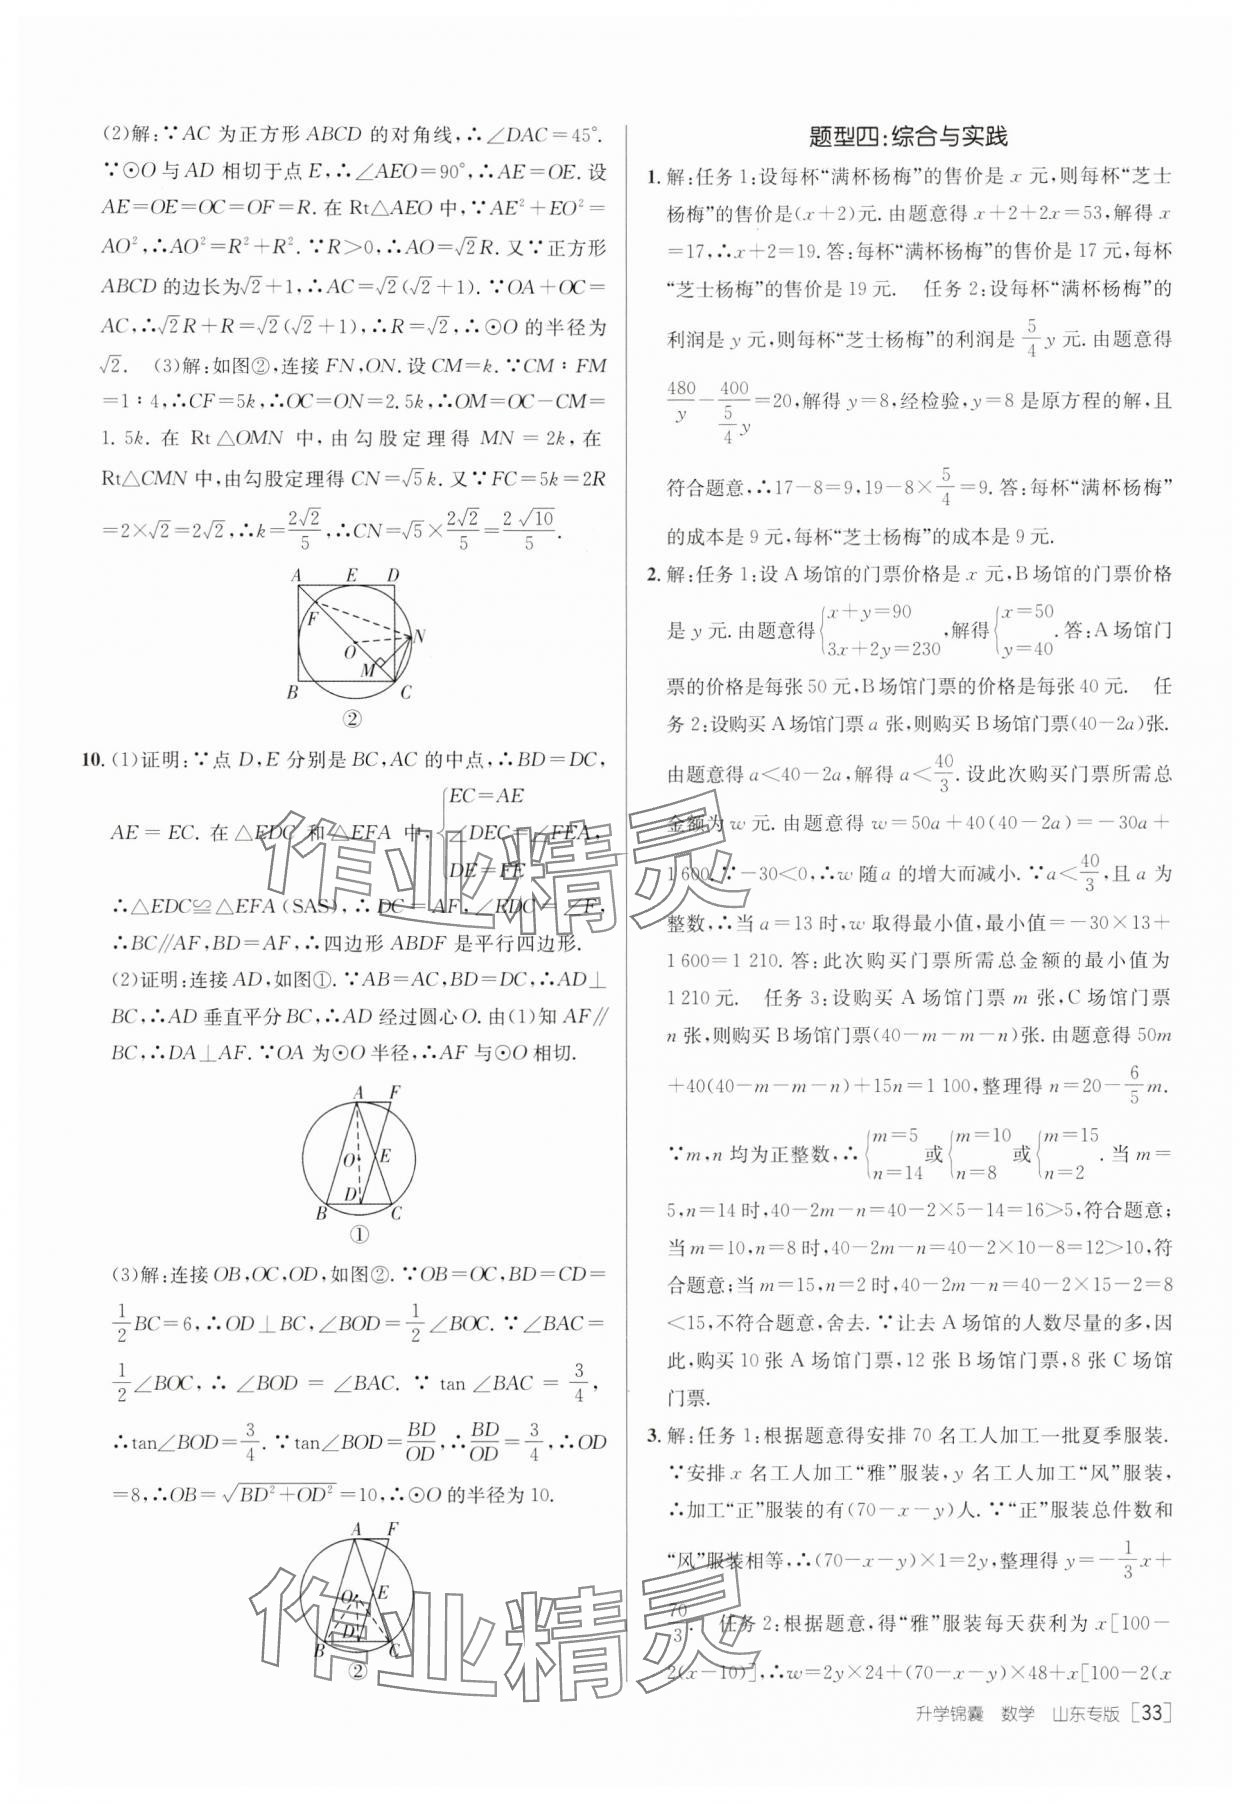 (2)解:∵AC 为正方形 ABCD 的对角线,∴∠DAC=45°.
∵⊙O 与 AD 相切于点 E,∴∠AEO=90°,∴AE=OE. 设
AE=OE=OC=OF=R. 在 Rt△AEO 中,∵AE²+EO²=
AO²,∴AO²=R²+R². ∵R>0,∴AO=√2R. 又∵正方形
ABCD 的边长为√2+1,∴AC=√2(√2+1). ∵OA+OC=
AC,∴√2R+R=√2(√2+1),∴R=√2,∴⊙O 的半径为
√2. (3)解:如图②,连接 FN,ON. 设 CM=k. ∵CM∶FM
=1∶4,∴CF=5k,∴OC=ON=2.5k,∴OM=OC-CM=
1.5k. 在 Rt△OMN 中,由勾股定理得 MN=2k,在
Rt△CMN 中,由勾股定理得 CN=√5k. 又∵FC=5k=2R
=2×√2=2√2,∴k=2√2/5,∴CN=√5×2√2/5=2√10/5.
A E D
F
N
O
M
B C
②
10. (1)证明:∵点 D,E 分别是 BC,AC 的中点,∴BD=DC,
AE=EC. 在△EDC 和△EFA 中,{EC=AE
∠DEC=∠FEA,
DE=FE
∴△EDC≌△EFA(SAS),∴DC=AF,∠EDC=∠F,
∴BC∥AF,BD=AF,∴四边形 ABDF 是平行四边形.
(2)证明:连接 AD,如图①. ∵AB=AC,BD=DC,∴AD⊥
BC,∴AD 垂直平分 BC,∴AD 经过圆心 O. 由(1)知 AF∥
BC,∴DA⊥AF. ∵OA 为⊙O 半径,∴AF 与⊙O 相切.
A F
O E
D
B C
①
(3)解:连接 OB,OC,OD,如图②. ∵OB=OC,BD=CD=
1/2BC=6,∴OD⊥BC,∠BOD=1/2∠BOC. ∵∠BAC=
1/2∠BOC,∴∠BOD=∠BAC. ∵tan∠BAC=3/4,
∴tan∠BOD=3/4. ∵tan∠BOD=BD/OD,∴BD/OD=3/4,∴OD
=8,∴OB=√(BD²+OD²)=10,∴⊙O 的半径为 10.
A F
O E
D
B C
②
题型四:综合与实践
1. 解:任务 1:设每杯“满杯杨梅”的售价是 x 元,则每杯“芝士
杨梅”的售价是(x+2)元. 由题意得 x+2+2x=53,解得 x
=17,∴x+2=19. 答:每杯“满杯杨梅”的售价是 17 元,每杯
“芝士杨梅”的售价是 19 元. 任务 2:设每杯“满杯杨梅”的
利润是 y 元,则每杯“芝士杨梅”的利润是5/4y 元. 由题意得
480/y-400/(5/4y)=20,解得 y=8,经检验,y=8 是原方程的解,且
符合题意,∴17-8=9,19-8×5/4=9. 答:每杯“满杯杨梅”
的成本是 9 元,每杯“芝士杨梅”的成本是 9 元.
2. 解:任务 1:设 A 场馆的门票价格是 x 元,B 场馆的门票价格
是 y 元. 由题意得{x+y=90 3x+2y=230,解得{x=50 y=40. 答:A 场馆门
票的价格是每张 50 元,B 场馆门票的价格是每张 40 元. 任
务 2:设购买 A 场馆门票 a 张,则购买 B 场馆门票(40-2a)张.
由题意得 a<40-2a,解得 a<40/3. 设此次购买门票所需总
金额为 w 元. 由题意得 w=50a+40(40-2a)=-30a+
1 600. ∵-30<0,∴w 随 a 的增大而减小. ∵a<40/3,且 a 为
整数,∴当 a=13 时,w 取得最小值,最小值=-30×13+
1 600=1 210. 答:此次购买门票所需总金额的最小值为
1 210 元. 任务 3:设购买 A 场馆门票 m 张,C 场馆门票
n 张,则购买 B 场馆门票(40-m-m-n)张. 由题意得 50m
+40(40-m-m-n)+15n=1 100,整理得 n=20-6/5m.
∵m,n 均为正整数,∴{m=5 n=14或{m=10 n=8或{m=15 n=2. 当 m=
5,n=14 时,40-2m-n=40-2×5-14=16>5,符合题意;
当 m=10,n=8 时,40-2m-n=40-2×10-8=12>10,符
合题意;当 m=15,n=2 时,40-2m-n=40-2×15-2=8
<15,不符合题意,舍去. ∵让去 A 场馆的人数尽量的多,因
此,购买 10 张 A 场馆门票,12 张 B 场馆门票,8 张 C 场馆
门票.
3. 解:任务 1:根据题意得安排 70 名工人加工一批夏季服装.
∵安排 x 名工人加工“雅”服装,y 名工人加工“风”服装,
∴加工“正”服装的有(70-x-y)人. ∵“正”服装总件数和
“风”服装相等,∴(70-x-y)×1=2y,整理得 y=-1/3x+
70/3. 任务 2:根据题意,得“雅”服装每天获利为 x[100-
2(x-10)],∴w=2y×24+(70-x-y)×48+x[100-2(x
升学锦囊 数学 山东专版 [33]
作业精灵
作业精灵